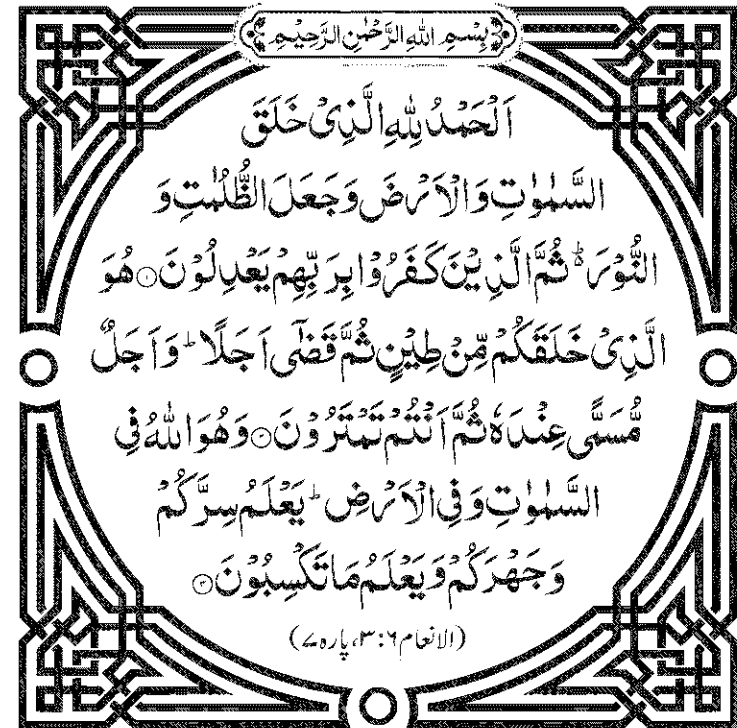 بِسْمِ اللهِ الرَّحْمٰنِ الرَّحِيْمِ
اَلْحَمْدُ لِلّٰهِ الَّذِیْ خَلَقَ
السَّمٰوٰتِ وَ الْاَرْضَ وَ جَعَلَ الظُّلُمٰتِ وَ
النُّوْرَ ؕ۬ ثُمَّ الَّذِیْنَ كَفَرُوْا بِرَبِّهِمْ یَعْدِلُوْنَ ۝۱ هُوَ
الَّذِیْ خَلَقَكُمْ مِّنْ طِیْنٍ ثُمَّ قَضٰۤی اَجَلًا ؕ وَ اَجَلٌ
مُّسَمًّی عِنْدَهٗ ثُمَّ اَنْتُمْ تَمْتَرُوْنَ ۝۲ وَ هُوَ اللّٰهُ فِی
السَّمٰوٰتِ وَ فِی الْاَرْضِ ؕ یَعْلَمُ سِرَّكُمْ
وَ جَهْرَكُمْ وَ یَعْلَمُ مَا تَكْسِبُوْنَ ۝۳
(الانعام ۶:۳، پارہ ۷)